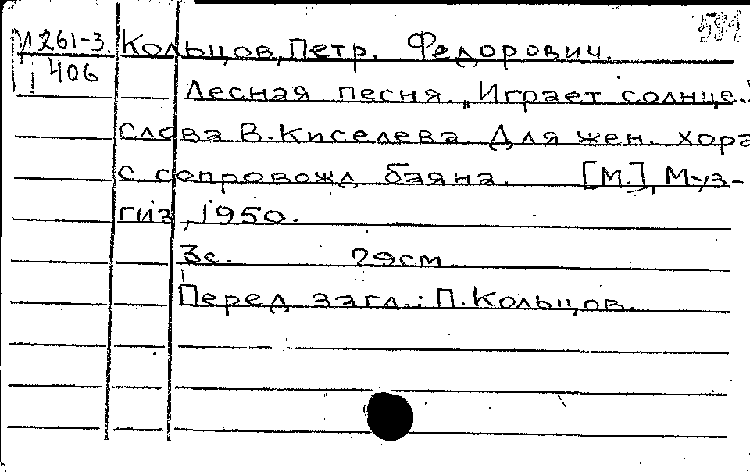 261-3 Кольцов, Петр. Федорович.
406
Лесная песня. „Играет солнце.."
Слова В. Киселева. Для жен. хора
с сопровожд. баяна. [М.], Муз-
гиз, 1950.
3с. 29см
Перед загл.: П. Кольцов.